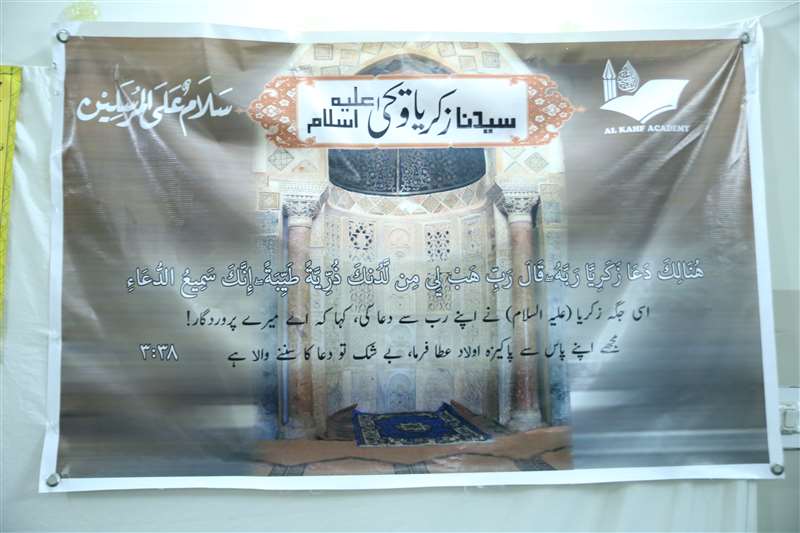 سَلَامٌ عَلَى المُرسَلِين
سیدنا زکریا و یحیٰ علیہ اسلام
AL KAHF ACADEMY
هُنَالِكَ دَعَا زَكَرِيَّا رَبَّهُ ۖ قَالَ رَبِّ هَبْ لِي مِن لَّدُنكَ ذُرِّيَّةً طَيِّبَةً ۖ إِنَّكَ سَمِيعُ الدُّعَاءِ
اسی جگہ زکریا (علیہ السلام) نے اپنے رب سے دعا کی، کہا کہ اے میرے پروردگار!
مجھے اپنے پاس سے پاکیزہ اولاد عطا فرما، بے شک تو دعا کا سننے والا ہے ۳:۳۸